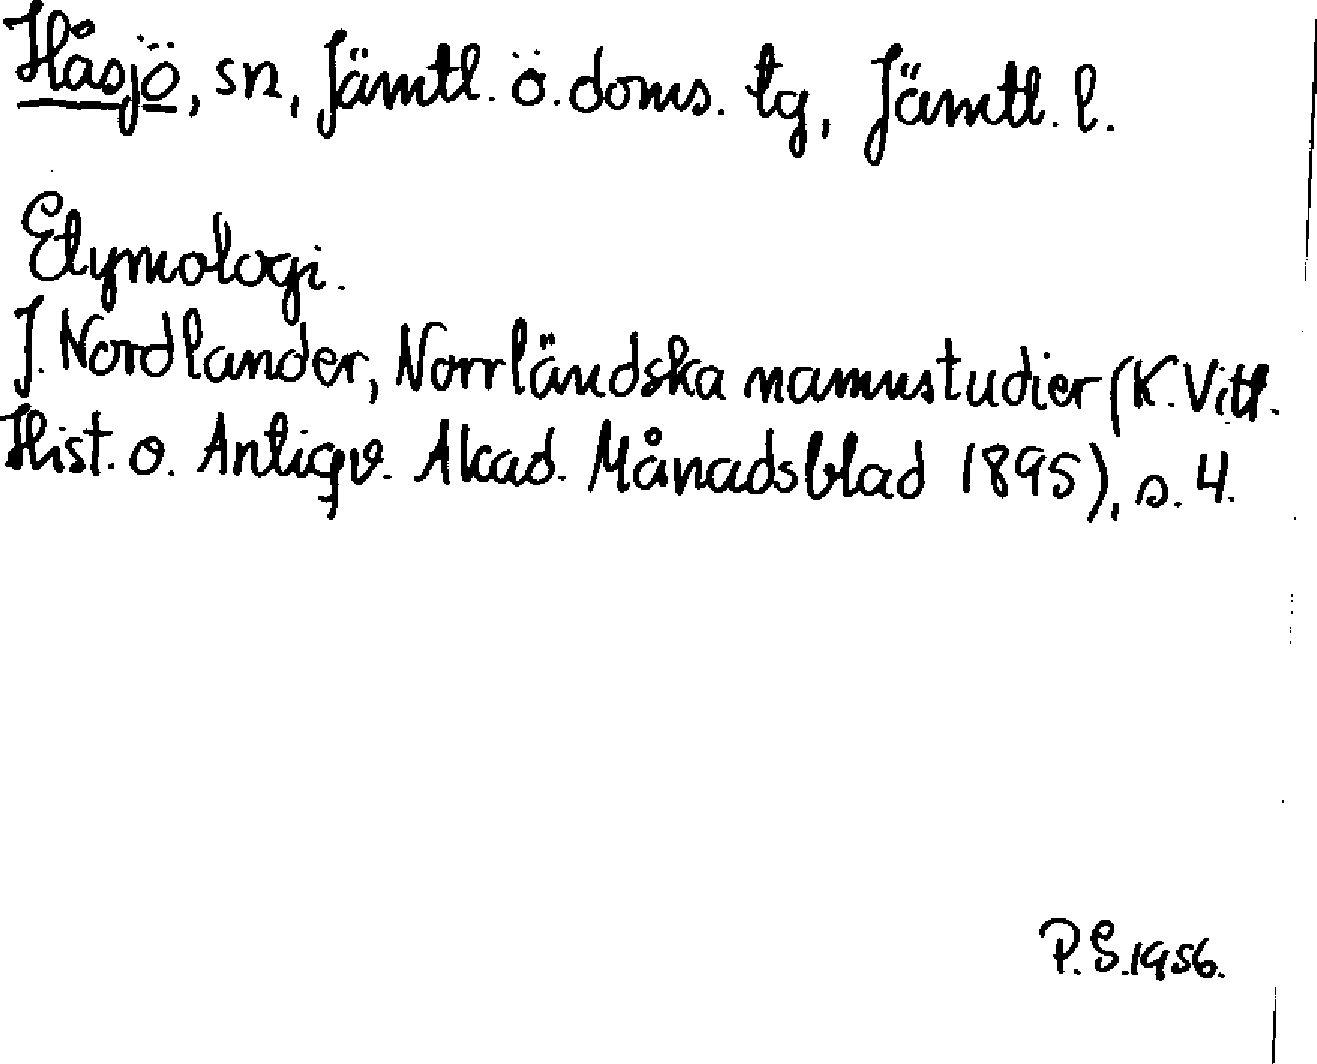 Håsjö, sn, Jämtl. ö. doms. tg, Jämtl. l.
Etymologi.
J. Nordlander, Norrländska namnstudier (K. Vitt.
Hist. o. Antiqv. Akad. Månadsblad 1895), s. 4.
P. S. 1956.